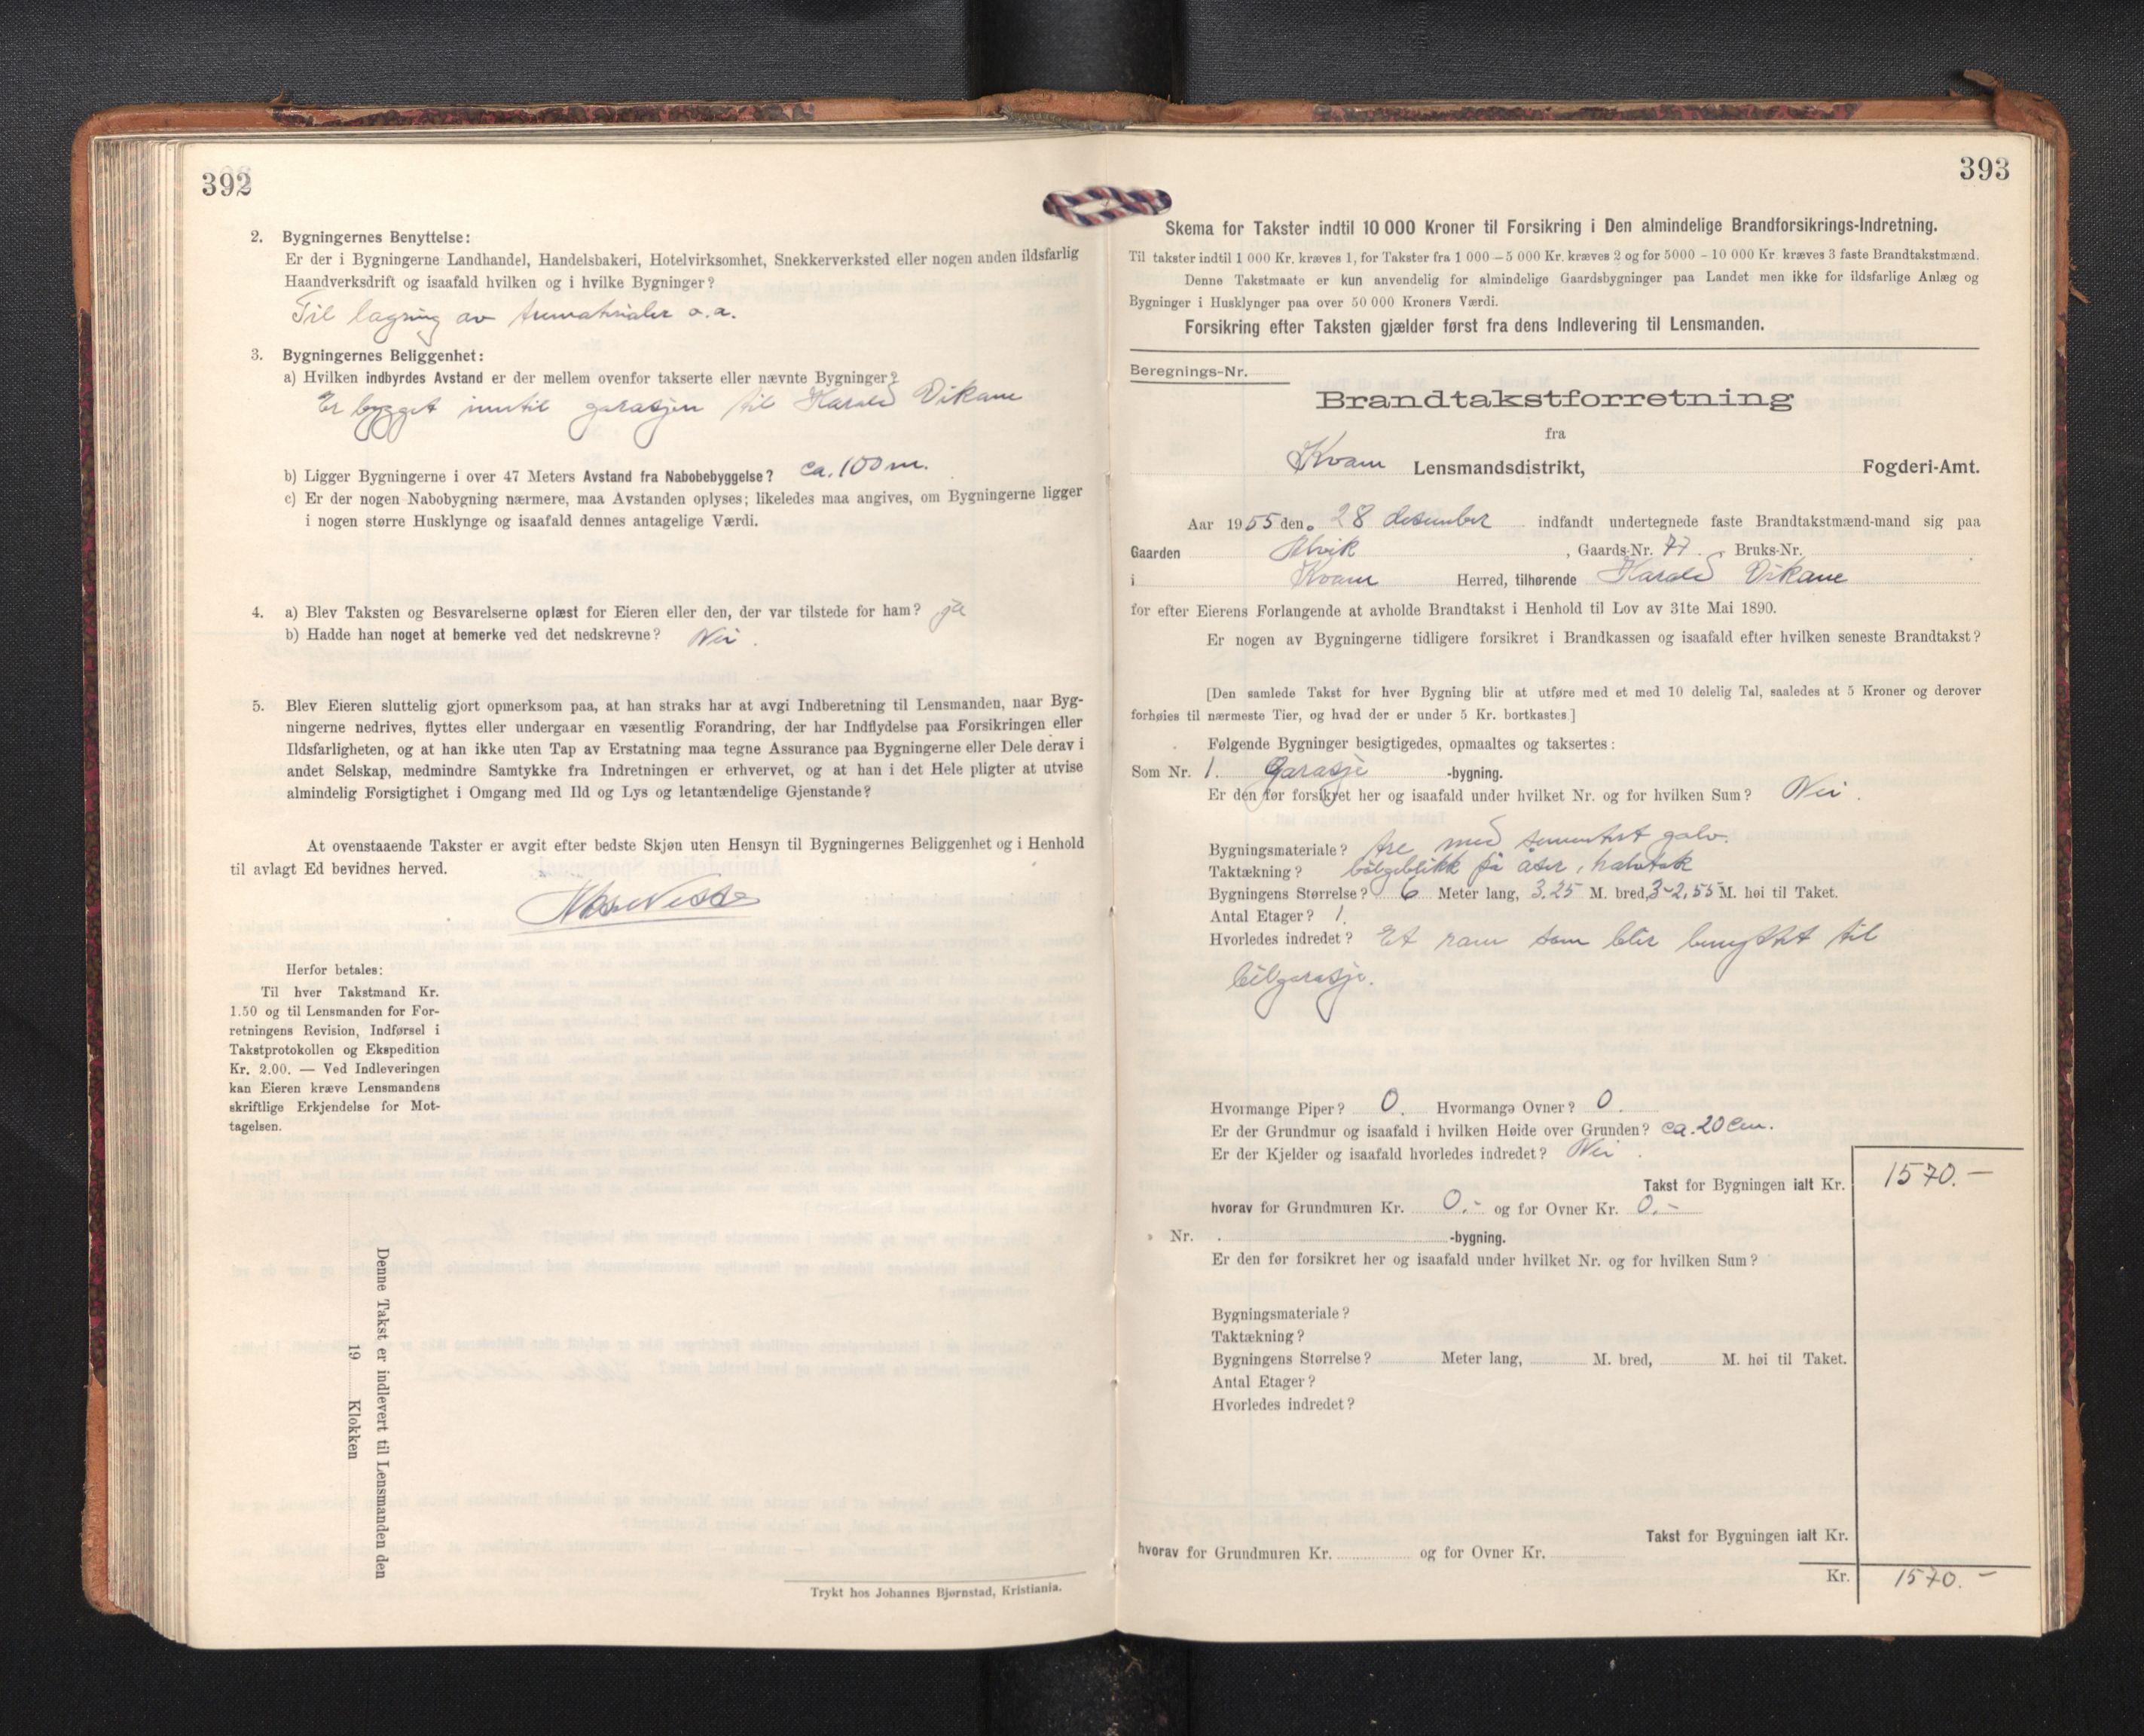 392
2. Bygningernes Benyttelse:
Er der i Bygningerne Landhandel, Handelsbakeri, Hotelvirksomhet, Snekkerverksted eller nogen anden ildsfarlig
Haandverksdrift og isaafald hvilken og i hvilke Bygninger?
Til lagring av trematerialer o.a.
3. Bygningernes Beliggenhet:
a) Hvilken indbyrdes Avstand er der mellem ovenfor takserte eller nævnte Bygninger?
Er bygget inntil garasjen til Harald Vikane
b) Ligger Bygningerne i over 47 Meters Avstand fra Nabobebyggelse? ca. 100 m.
c) Er der nogen Nabobygning nærmere, maa Avstanden oplyses; likeledes maa angives, om Bygningerne ligger
i nogen større Husklynge og isaafald dennes antagelige Værdi.
4. a) Blev Taksten og Besvarelserne oplæst for Eieren eller den, der var tilstede for ham? ja
b) Hadde han noget at bemerke ved det nedskrevne? Nei.
5. Blev Eieren sluttelig gjort opmerksom paa, at han straks har at avgi Indberetning til Lensmanden, naar Byg-
ningerne nedrives, flyttes eller undergaar en væsentlig Forandring, der har Indflydelse paa Forsikringen eller
Ildsfarligheten, og at han ikke uten Tap av Erstatning maa tegne Assurance paa Bygningerne eller Dele derav i
andet Selskap, medmindre Samtykke fra Indretningen er erhvervet, og at han i det Hele pligter at utvise
almindelig Forsigtighet i Omgang med Ild og Lys og letantændelige Gjenstande?
At ovenstaaende Takster er avgit efter bedste Skjøn uten Hensyn til Bygningernes Beliggenhet og i Henhold
til avlagt Ed bevidnes herved.
Herfor betales:
Til hver Takstmand Kr.
1.50 og til Lensmanden for For-
retningens Revision, Indførsel i
Takstprotokollen og Ekspedition
Kr. 2.00. — Ved Indleveringen
kan Eieren kræve Lensmandens
skriftlige Erkjendelse for Mot-
tagelsen.
Denne Takst er indlevert til Lensmanden den
19 Klokken
Trykt hos Johannes Bjørnstad, Kristiania.
393
Skema for Takster indtil 10 000 Kroner til Forsikring i Den almindelige Brandforsikrings-Indretning.
Til takster indtil 1 000 Kr. kræves 1, for Takster fra 1 000 – 5 000 Kr. kræves 2 og for 5000 – 10 000 Kr. kræves 3 faste Brandtakstmænd.
Denne Takstmaate er kun anvendelig for almindelige Gaardsbygninger paa Landet men ikke for ildsfarlige Anlæg og
Bygninger i Husklynger paa over 50 000 Kroners Værdi.
Forsikring efter Taksten gjælder først fra dens Indlevering til Lensmanden.
Beregnings-Nr.
Brandtakstforretning
fra
Kvam Lensmandsdistrikt, Fogderi-Amt.
Aar 1955 den 28 desember indfandt undertegnede faste Brandtakstmænd-mand sig paa
Gaarden Ålvik, Gaards-Nr. 77. Bruks-Nr.
i Kvam Herred, tilhørende Harald Vikane
for efter Eierens Forlangende at avholde Brandtakst i Henhold til Lov av 31te Mai 1890.
Er nogen av Bygningerne tidligere forsikret i Brandkassen og isaafald efter hvilken seneste Brandtakst?
[Den samlede Takst for hver Bygning blir at utføre med et med 10 delelig Tal, saaledes at 5 Kroner og derover
forhøies til nærmeste Tier, og hvad der er under 5 Kr. bortkastes.]
Følgende Bygninger besigtigedes, opmaaltes og taksertes:
Som Nr. 1. Garasje -bygning.
Er den før forsikret her og isaafald under hvilket Nr. og for hvilken Sum? Nei.
Bygningsmateriale? tre med sementert golv.
Taktækning? bölgeblikk på åser, halvtak
Bygningens Størrelse? 6 Meter lang, 3,25 M. bred, 3-2,55 M. høi til Taket.
Antal Etager? 1.
Hvorledes indredet? Et rom som blir benyttet til
bilgarasje.
Hvormange Piper? 0. Hvormange Ovner? 0.
Er der Grundmur og isaafald i hvilken Høide over Grunden? ca. 20 cm.
Er der Kjelder og isaafald hvorledes indredet? Nei.
Takst for Bygningen ialt Kr. 1570.-
hvorav for Grundmuren Kr. 0.- og for Ovner Kr. 0.-
» Nr. -bygning.
Er den før forsikret her og isaafald under hvilket Nr. og for hvilken Sum?
Bygningsmateriale?
Taktækning?
Bygningens Størrelse? Meter lang, M. bred, M. høi til Taket.
Antal Etager?
Hvorledes indredet?
Takst for Bygningen ialt Kr.
hvorav for Grundmuren Kr. og for Ovner Kr.
Kr. 1570.-